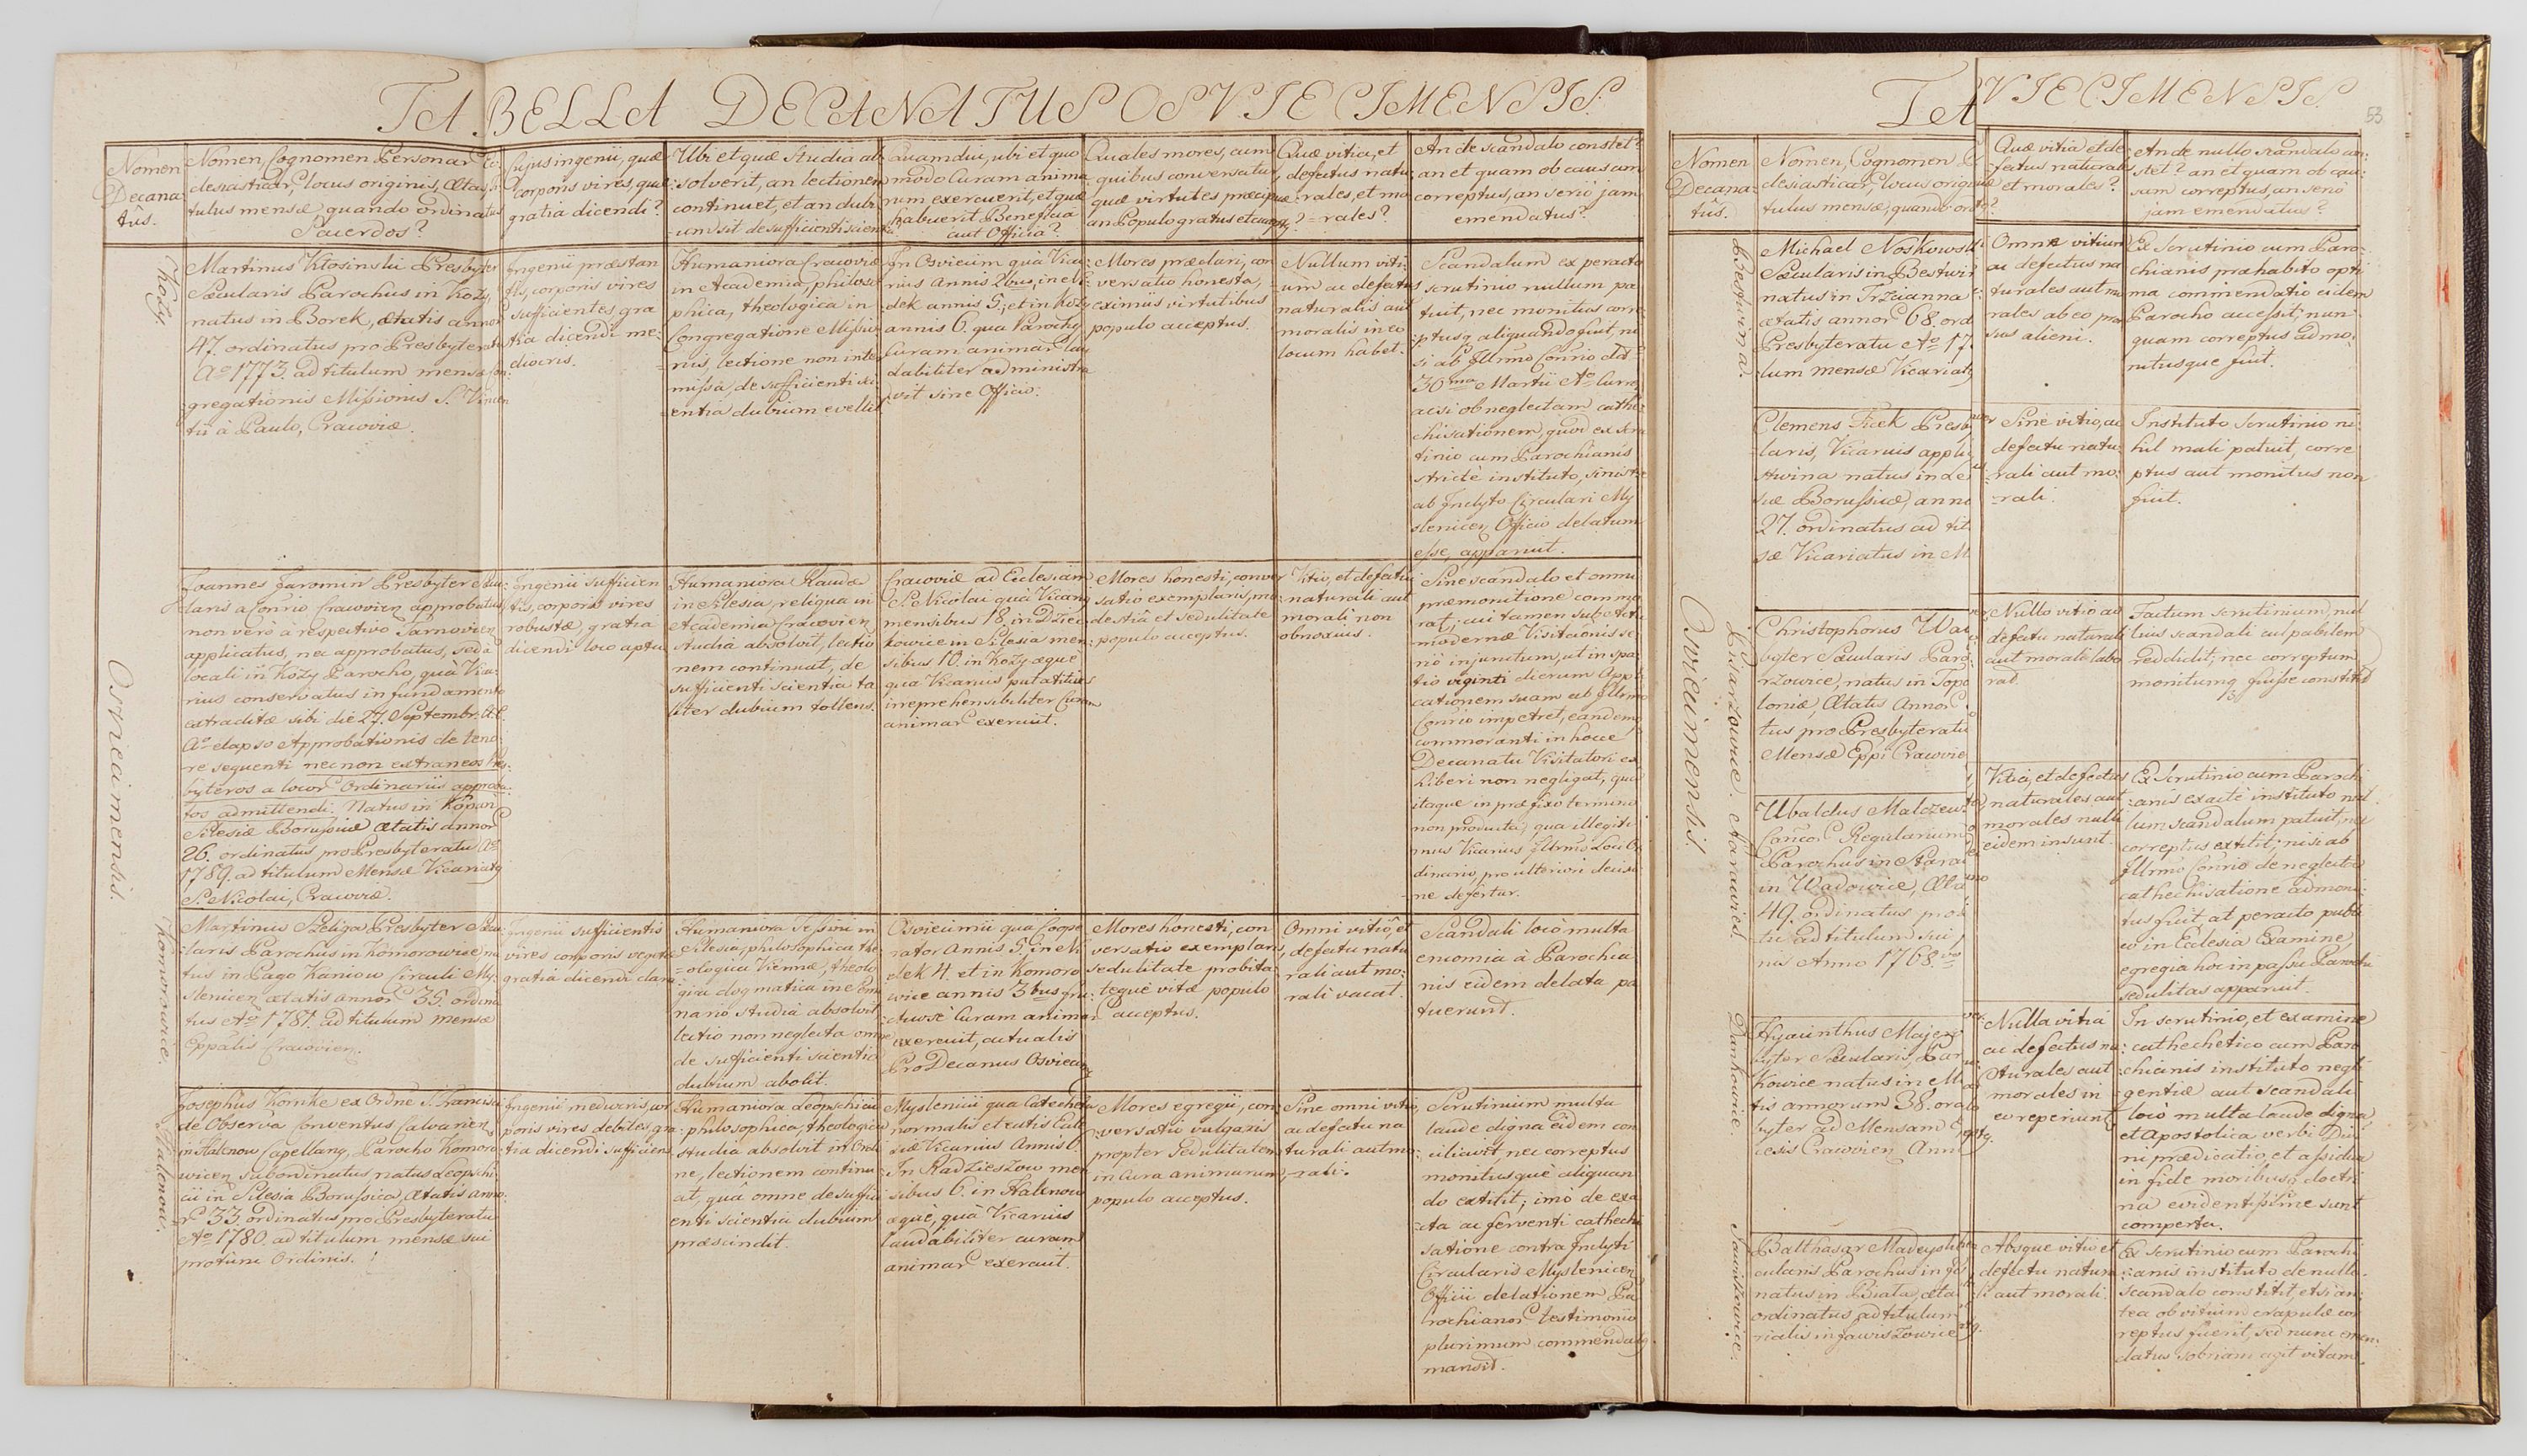 TABELLA DECANATUS OSVIECIMENSIS.
Nomen
Decana
tûs.
Nomen, Cognomen Personar Ec-
clesiasticar, locus originis, Ætas, ti
tulus mensæ, quando ordinatus
Sacerdos?
Cujus ingenii, quæ
corporis vires, quæ
gratia dicendi?
Ubi et quæ Studia ab
solverit, an lectionem
continuet, et an dubi
um sit de sufficienti scientia
Quamdiu, ubi et quo
modo Curam anima
rum exercuerit, et quæ
habuerit Beneficia
aut Officia?
Quales mores, cum
quibus conversatur,
quæ virtutes præcipuæ
an Populo gratus et carus?
Quæ vitia, et
defectus natu
rales, et mo
rales?
An de scandalo constet?
an et quam ob causam
correptus, an serio jam
emendatus?
Osviecimensis.
Kozy.
Martinus Kłosinski Presbyter
Sæcularis Parochus in Kozy,
natus in Borek, ætatis annor
47. ordinatus pro Presbyteratu
Aº 1773. ad titulum mensæ Con
gregationis Missionis S. Vincen
tii à Paulo, Cracoviæ.
Ingenii præstan
tis, corporis vires
sufficientes, gra
tia dicendi me
diocris.
Humaniora Cracoviæ
in Academia, philoso
phica, theologica in
Congregatione Missio
nis, lectione non inter
missa, de sufficienti sci
entia dubium evellit.
In Osviecim quà Vica
rius annis 2bus, in
dek annis 5; et in Kozy
annis 6. qua Parochy
Curam animar lau
dabiliter administra
vit sine Officio.
Mores præclari, con
versatio honesta,
eximiis virtutibus
populo acceptus.
Nullum viti
um ac defectus
naturalis aut
moralis in eo
locum habet.
Scandalum ex peracto
scrutinio nullum pa
tuit, nec monitus corre
ptusq aliquando fuit, ni
si ab Illmo Conrio
30ma Martii Aº Curr
acsi ob neglectam cathe
chisationem, quod ex scru
tinio cum Parochianis
strictè instituto, sinistre
ab Inclyto Circulari My
slenicen Officio delatum
esse, apparuit.
Joannes Jaromin Presbyter Sæcu
laris a Conrio Cracovien approbatus,
non verò à respectivo Tarnovien
applicatus, nec approbatus, sed à
locali in Kozy Parocho, quà Vica
rius conservatus in fundamento
extraditæ sibi die 27. Septembr. A.C.
Aº elapso Approbationis de teno
re sequenti nec non extraneos Pres
byteros a locor Ordinariis approba
tos admittendi. Natus in Kopan
Silesiæ Borussicæ ætatis annor
26. ordinatus pro Presbyteratu Aº
1789. ad titulum Mensæ Vicariatq
S. Nicolai, Cracoviæ.
Ingenii sufficien
tis, corporis vires
robustæ, gratia
dicendi loco apta
Humaniora Raudæ
in Silesia, reliqua in
Academia Cracovien
studia absolvit, lectio
nem continuat, de
sufficienti scientia ta
liter dubium tollens.
Cracoviæ ad Ecclesiam
S. Nicolai quà Vicarius
mensibus 18, in Dzieć
kowice in Silesia men
sibus 10. in Kozy æque
qua Vicarius putatitius
irreprehensibiliter Curam
animar exercuit.
Mores honesti, conver
satio exemplaris, mo
destia et sedulitate
populo acceptus.
Vitio, et defectu
naturali aut
morali non
obnoxius.
Sine scandalo et omni
præmonitione commo
rat; cui tamen sub actu
modernæ Visitationis se
rio injunctum, ut in spa
tio viginti dierum Appli
cationem suam ab Illmo
Conrio impetret, eandem
commoranti in hocce
Decanatu Visitatori ex
hiberi non negligat, qua
itaque in præfixo termino
non producta, qua illegiti
mus Vicarius Illmo Loci Or
dinario, pro ulteriori decisio
ne defertur.
Komorowice.
Martinus Szeliga Presbyter Sæcu
laris Parochus in Komorowice na
tus in Pago Kaniow Circuli My
slenicen ætatis annor 35. ordina
tus Aº 1781. ad titulum mensæ
Eppalis Cracovien.
Ingenii sufficientis
vires corporis vegetæ
gratia dicendi clara
Humaniora Tessini in
Silesia, philosophica the
ologica Viennæ, theolo
gica dogmatica in Semi
nario studia absolvit
lectio non neglecta omne
de sufficienti scientia
dubium abolit.
Osviecimii qua Coope
rator Annis 5. in Ni
dek 4. et in Komoro
wice annis 3bus fru
ctuose Curam animar
exercuit, actualis
ProDecanus Osviecim
Mores honesti, con
versatio exemplaris,
sedulitate probita
teque vitæ populo
acceptus.
Omni vitio, et
defectu natu
rali aut mo
rali vacat.
Scandali locò multa
encomia à Parochia
nis eidem delata pa
tuerunt.
Halcnow.
Josephus Kornke ex Ordne S. Francisci
de Observa Conventus Calvarien
in Halcnow Capellanq, Parocho Komoro
wicen subordinatus natus Leopschi
cii in Silesia Borussica, ætatis anno
r 33. ordinatus pro Presbyteratu
Aº 1780. ad titulum mensæ sui
protunc Ordinis.
Ingenii mediocris, cor
poris vires debiles, gra
tia dicendi sufficien
Humaniora Leopschicii
philosophica, theologica
studia absolvit in Ordi
ne, lectionem continu
at, quâ omne de suffici
enti scientia dubium
præscindit.
Myslenicii qua Catecheta
normalis et
Vicarius Annis 6.
In Radzieszow men
sibus 6. in Halcnow
æquè, quà Vicarius
laudabiliter curam
animar exercuit.
Mores egregii, con
versatio vulgaris
propter Sedulitatem
in Cura animarum,
populo acceptus.
Sine omni vitio,
ac defectu na
turali aut mo
rali.
Scrutinium multa
laude digna eidem con
ciliavit, nec correptus
monitusquè aliquan
do extitit; imò de exa
cta ac ferventi cathechi
satione contra Inclyti
Circularis Myslenicen
Officii delationem Pa
rochianor testimonio
plurimum commendatq
mansit.
TA
VIECIMENSIS.
53
Nomen
Decana
tûs.
Nomen, Cognomen
clesiasticar, locus origi
tulus mensæ, quando ord
Quæ vitia et de
fectus naturales
et morales?
An de nullo scandalo con
stet? an et quam ob cau
sam correptus, an serió
jam emendatus?
Osviecimensis.
Bestwina.
Michael Noskowski
Sæcularis in Bestwin
natus in Trzcianna
ætatis annor 68. ord
Presbyteratu Aº 17
lum mensæ Vicariatq
Omne vitium
ac defectus na
turales aut mo
rales ab eo pror
sus alieni.
Ex Scrutinio cum Paro
chianis præhabito opti
ma commendatio eidem
Parocho accessit; nun
quam correptus admo
nitusque fuit.
Clemens Ficek Presb
laris, Vicarius appli
stwina natus in Le
siæ Borussicæ, ann
27. ordinatus ad tit
sæ Vicariatus in M
Sine vitio, ac
defectu natu
rali aut mo
rali.
Instituto Scrutinio ni
hil mali patuit, corre
ptus aut monitus non
fuit.
Pisarzowice.
Christophorus Wal
byter Sæcularis Paro
rzowice, natus in Topo
loniæ, Ætatis Annor
tus pro Presbyteratu
Mensæ Eppi Cracovie
Nullo vitio ac
defectu naturali
aut morali labo
rat.
Factum scrutinium, nul
lius scandali culpabilem
reddidit; nec correptum
monitumq fuisse constitit
Starawieś.
Ubaldus Malczew
Canco Regularium
Parochus in Stara
in Wadowice, Æta
49. ordinatus pro
tu ad titulum sui
na Anno 1768.vo
Vitia, et defectus
naturales aut
morales nulli
eidem insunt.
Ex Scrutinio cum Parochi
anis exactè instituto nul
lum scandalum patuit, nec
correptus extitit; nisi ab
Illmo Conrio de neglecta
cathechisatione admoni
tus fuit, at peracto publi
co in Ecclesia Examine,
egregia hoc in passu Parochi
sedulitas apparuit.
Dankowice
Hyacinthus Majer
byter Sæcularis, Par
kowice natus in M
tis annorum 38. ord
byter ad Mensam
cesis Cracovien Ann
Nulla vitia
ac defectus na
turales aut
morales in
eo reperiunt
In scrutinio, et examine
cathechetico cum Paro
chianis instituto negli
gentiæ aut scandali
locò multa laude digna
et Apostolica verbi Divi
ni prædicatio, et assidua
in fide moribusq doctri
na evidentissime sunt
comperta.
Jawiszowice.
Balthasar Madeyski
cularis Parochus in Ja
natus in Biała, æta
ordinatus ad titulum
rialis in Jawiszowice
Absque vitio et
defectu natura
li aut morali.
Ex scrutinio cum Parochi
anis instituto de nullo
scandalo constitit, etsi an
tea ob vitium crapulæ cor
reptus fuerit, sed nunc emen
datus sobriam agit vitam.